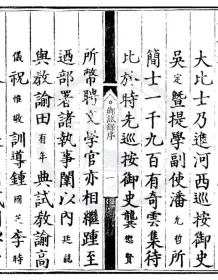 大比士乃進河西巡按御史
吳定暨提學副使潘允哲所
簡士一千九百有奇雲集待
比於時先巡按御史龔懋賢
所幣聘文學官亦相繼踵至
迺部署諸執事闈以內廷龍
與敎諭田有年典試敎諭高
儀祝惟敬訓導鍾國李時